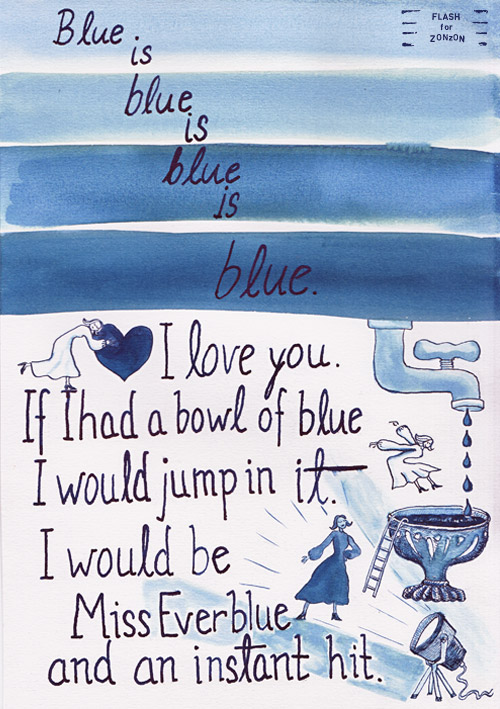 FLASH
for
ZONZON
Blue
is
blue
is
blue
is
blue.
I love you.
If I had a bowl of blue
I would jump in it.
I would be
Miss Everblue
and an instant hit.